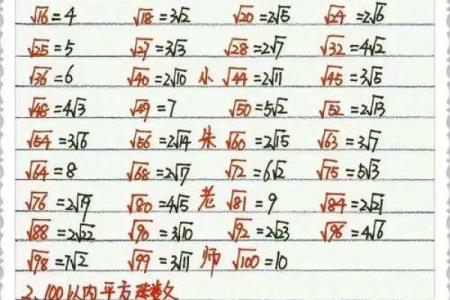 √16=4 √18=3√2 √20=2√5 √24=2√6
√25=5 √27=3√3 √28=2√7 √32=4√2
√36=6 √40=2√10 小 √44=2√11 √45=3√5
√48=4√3 √49=7 √50=5√2 √52=2√13
√54=3√6 √56=2√14 朱 √60=2√15 √63=3√7
√64=8 √68=2√17 √72=6√2 √75=5√3
√76=2√19 √80=4√5 老 √81=9 √84=2√21
√88=2√22 √90=3√10 √92=2√23 √96=4√6
√98=7√2 √99=3√11 师 √100=10
2.100以内平方